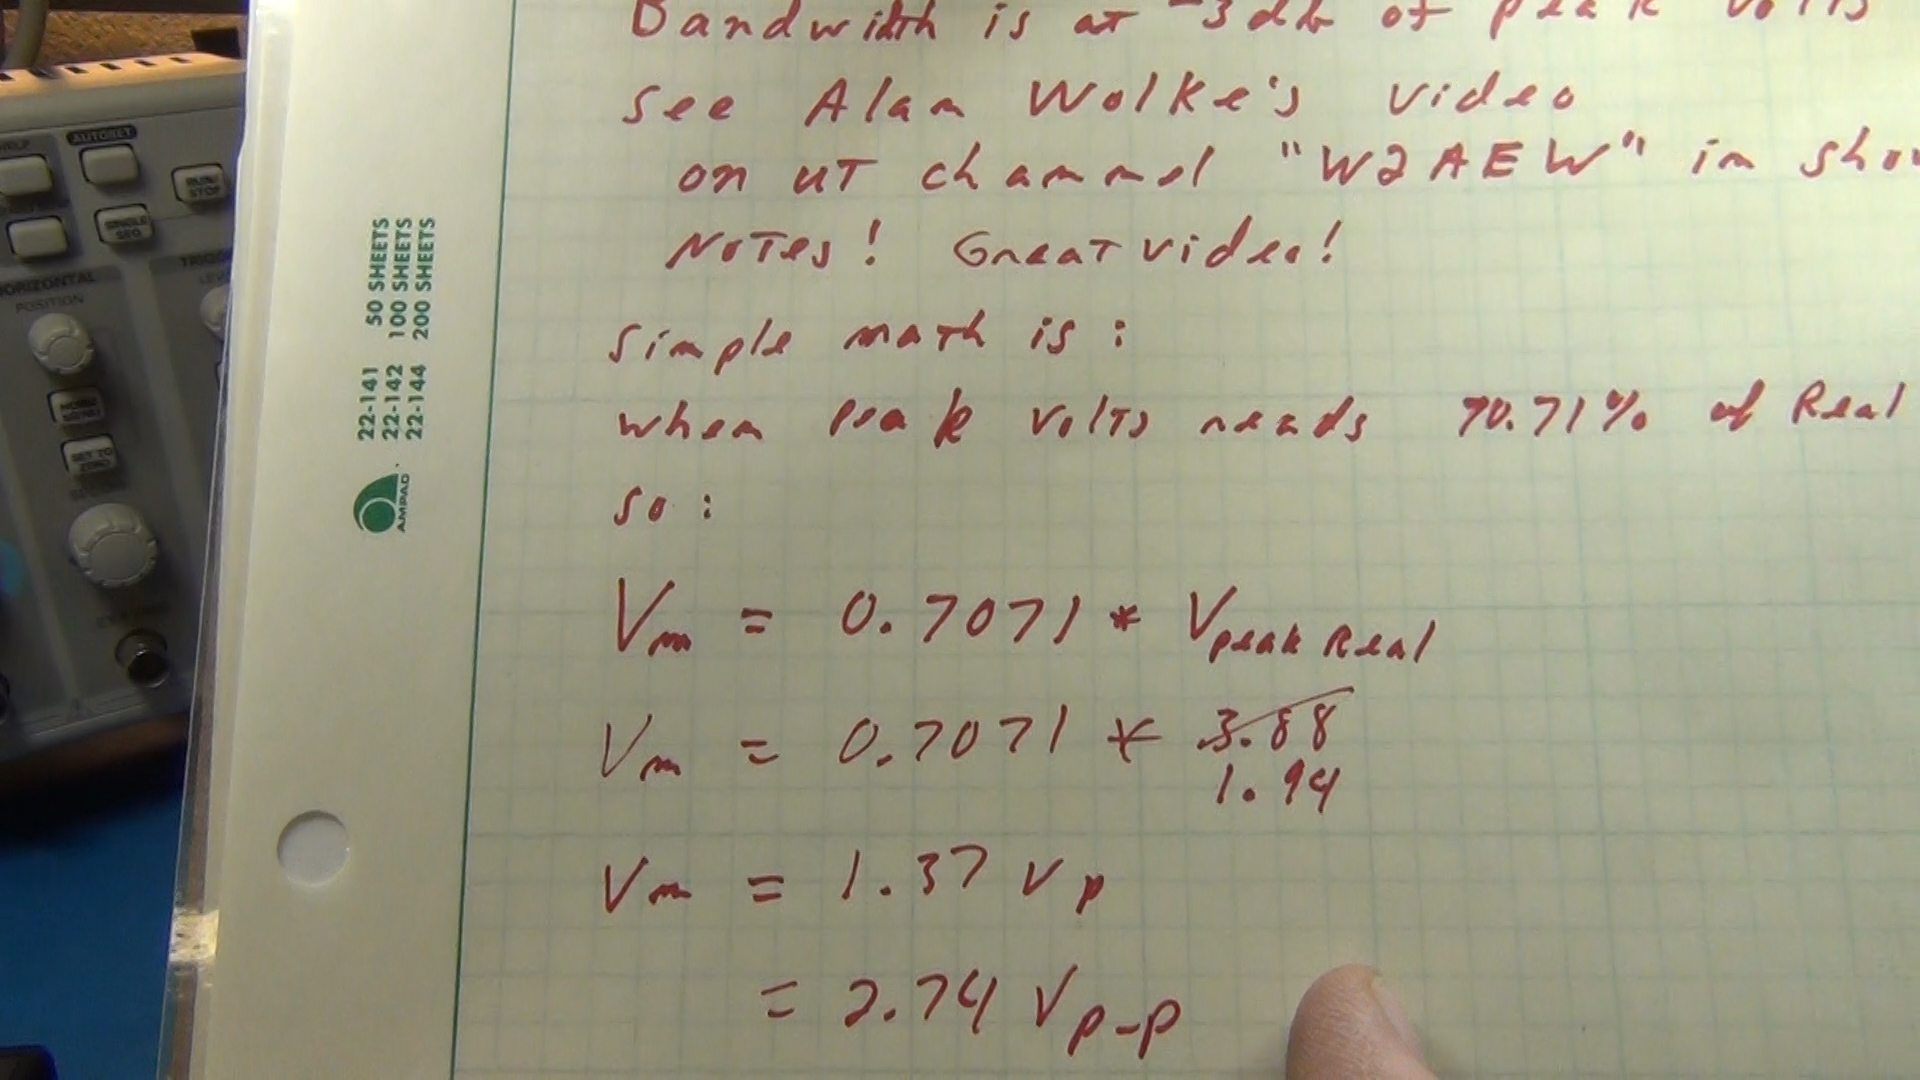 Bandwidth is at -3db of peak volts
See Alan Wolke's video
on UT channel "W2AEW" in show
Notes! Great video!
Simple math is:
when peak volts reads 70.71% of Real
so:
Vm = 0.7071 * Vpeak Real
Vm = 0.7071 * 3.88
1.94
Vm = 1.37 Vp
= 2.74 Vp-p
22-141 50 SHEETS
22-142 100 SHEETS
22-144 200 SHEETS
AMPAD
HELP
AUTOSET
RUN/STOP
SINGLE SEQ
HORIZONTAL
POSITION
TRIG
LEV
SET TO ZERO